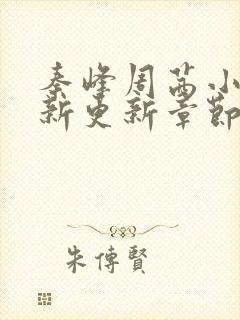 秦峰周茜小
新更新章節
朱傳賢